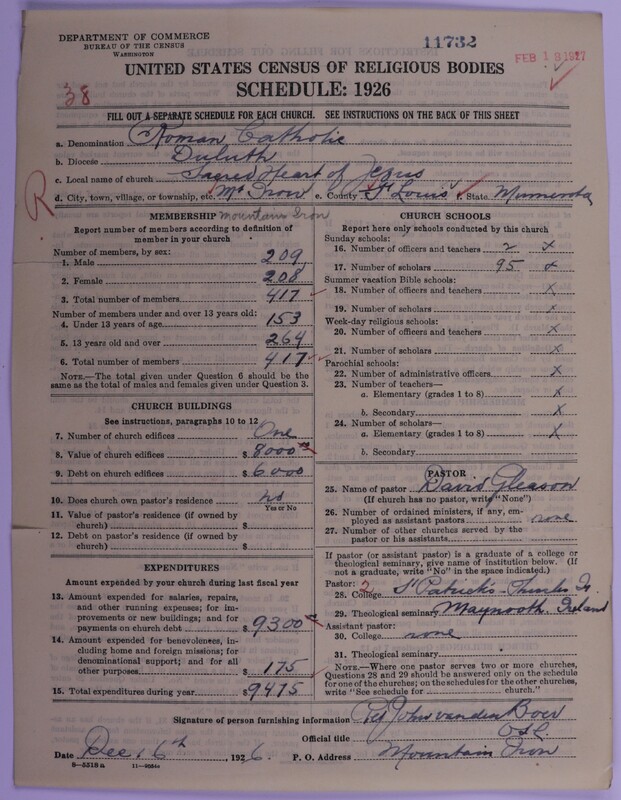 DEPARTMENT OF COMMERCE
BUREAU OF THE CENSUS
WASHINGTON
11732
FEB 18 1927
UNITED STATES CENSUS OF RELIGIOUS BODIES
SCHEDULE: 1926
38
FILL OUT A SEPARATE SCHEDULE FOR EACH CHURCH. SEE INSTRUCTIONS ON THE BACK OF THIS SHEET
a. Denomination Roman Catholic
b. Diocese Duluth
c. Local name of church Sacred Heart of Jesus
d. City, town, village, or township, etc. Mt Iron e. County St Louis f. State Minnesota
R
Mountain Iron
MEMBERSHIP
Report number of members according to definition of
member in your church
Number of members, by sex:
1. Male 209
2. Female 208
3. Total number of members 417
Number of members under and over 13 years old:
4. Under 13 years of age 153
5. 13 years old and over 264
6. Total number of members 417
NOTE.—The total given under Question 6 should be
same as the total of males and females given under Question 3.
CHURCH BUILDINGS
See instructions, paragraphs 10 to 12
7. Number of church edifices One
8. Value of church edifices $ 8000
9. Debt on church edifices $ 6000
10. Does church own pastor's residence no
Yes or No
11. Value of pastor's residence (if owned by
church) $
12. Debt on pastor's residence (if owned by
church) $
EXPENDITURES
Amount expended by your church during last fiscal year
13. Amount expended for salaries, repairs,
and other running expenses; for im-
provements or new buildings; and for
payments on church debt $ 9300
14. Amount expended for benevolences, in-
cluding home and foreign missions; for
denominational support; and for all
other purposes $ 175
15. Total expenditures during year $ 9475
CHURCH SCHOOLS
Report here only schools conducted by this church
Sunday schools:
16. Number of officers and teachers 2 x
17. Number of scholars 95 x
Summer vacation Bible schools:
18. Number of officers and teachers x
19. Number of scholars x
Week-day religious schools:
20. Number of officers and teachers x
21. Number of scholars x
Parochial schools:
22. Number of administrative officers x
23. Number of teachers—
a. Elementary (grades 1 to 8) x
b. Secondary x
24. Number of scholars—
a. Elementary (grades 1 to 8) x
b. Secondary
PASTOR
25. Name of pastor David Gleason
(If church has no pastor, write "None")
26. Number of ordained ministers, if any, em-
ployed as assistant pastors none
27. Number of other churches served by the
pastor or his assistants
If pastor (or assistant pastor) is a graduate of a college or
theological seminary, give name of institution below. (If
not a graduate, write "No" in the space indicated.)
Pastor: 2
28. College St Patrick's Thurles
29. Theological seminary Maynooth Ireland
Assistant pastor:
30. College none
31. Theological seminary
NOTE.—Where one pastor serves two or more churches,
Questions 28 and 29 should be answered only on the schedule
for one of the churches; on the schedules for the other churches,
write "See schedule for church."
Signature of person furnishing information John vanden Boer
Official title
Date Dec 16th, 1926. P. O. Address Mountain Iron
8—5318 a